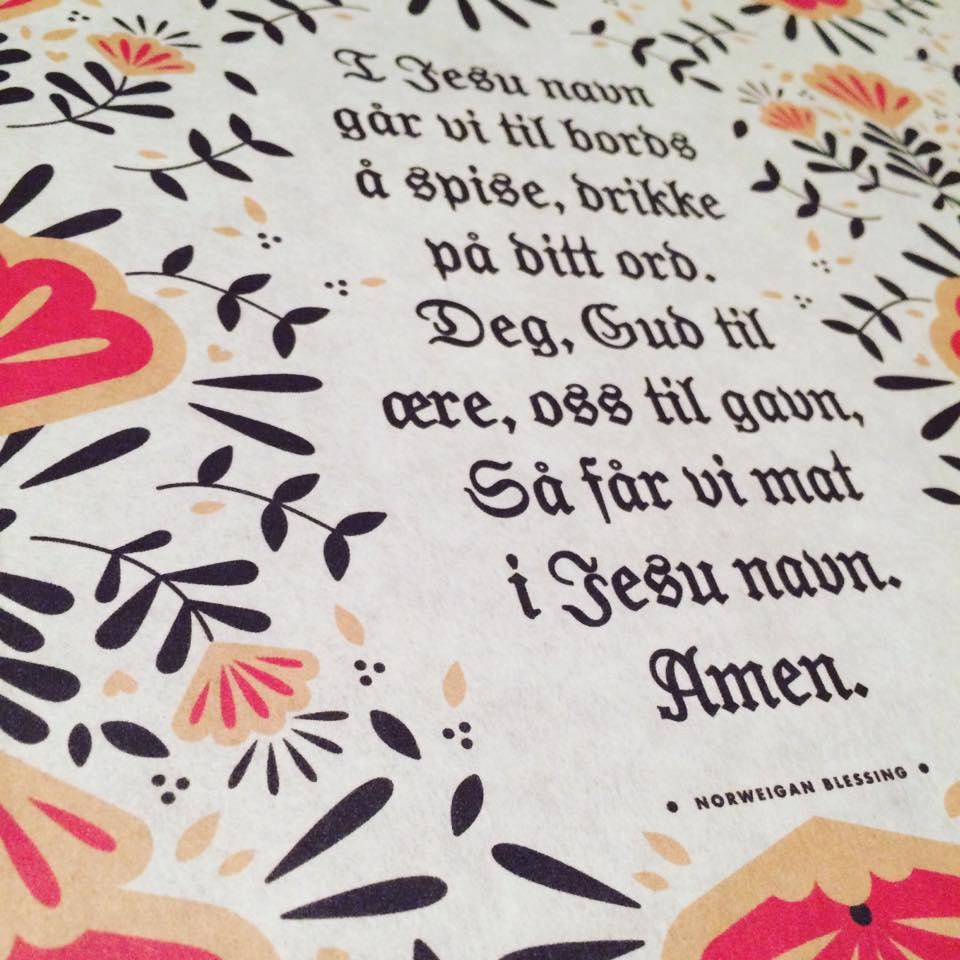 I Jesu navn
går vi til bords
å spise, drikke
på ditt ord.
Deg, Gud til
ære, oss til gavn,
Så får vi mat
i Jesu navn.
Amen.
• NORWEIGAN BLESSING •